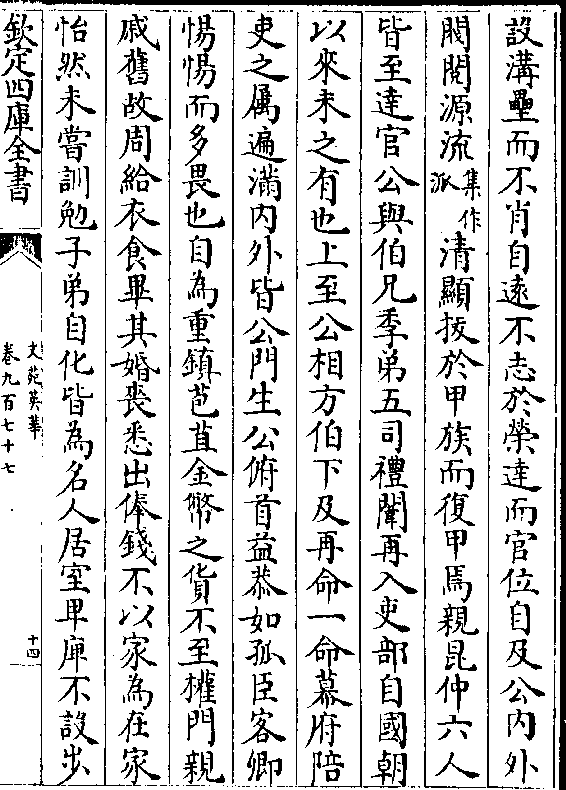 設溝壘而不肖自遠不志於榮達而官位自及公内外
閥閲源流集作派清顯拔於甲族而復甲焉親昆仲六人
皆至達官公與伯兄季弟五司禮闈再入吏部自國朝
以來未之有也上至公相方伯下及再命一命幕府陪
吏之屬遍滿内外皆公門生公俯首益恭如孤臣客卿
惕惕而多畏也自為重鎮苞苴金幣之貨不至權門親
戚舊故周給衣食畢其婚喪悉出俸錢不以家為在家
怡然未嘗訓勉子弟自化皆為名人居室卑庳不設步
欽定四庫全書
文苑英華
卷九百七十七
十四